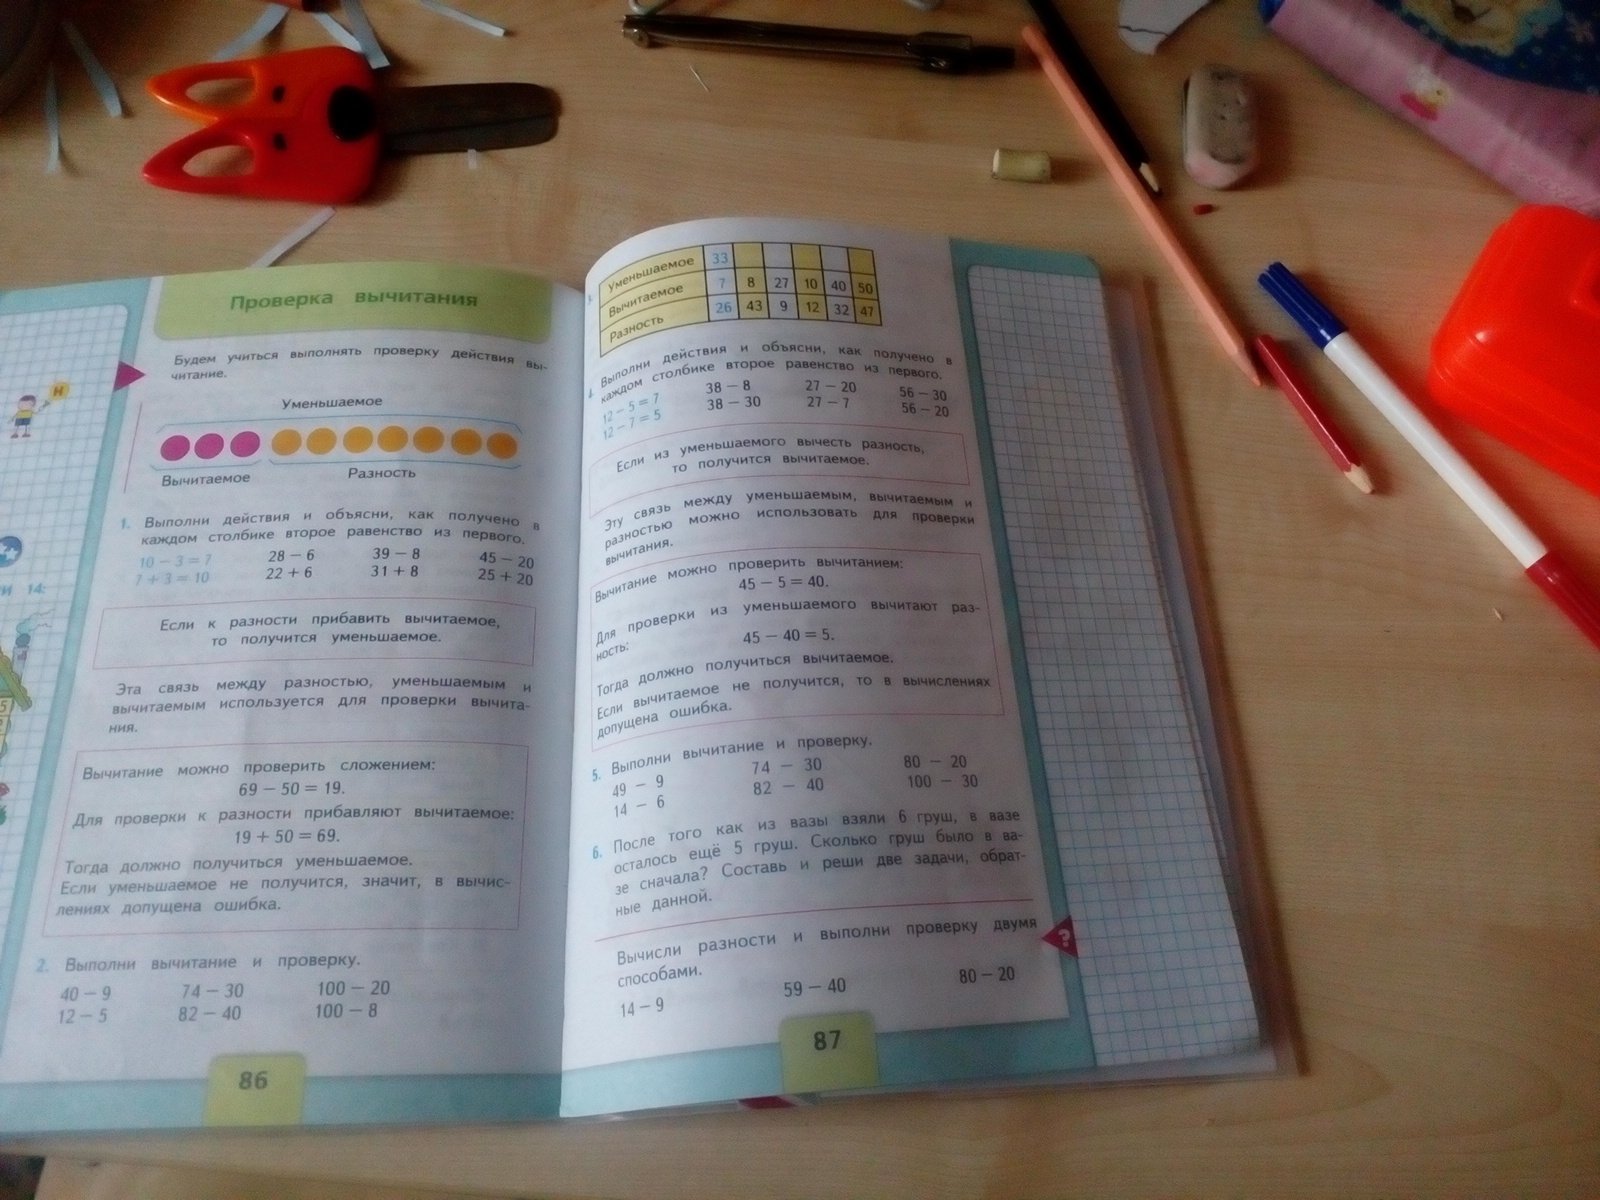 Н
и 14:
Проверка вычитания
Будем учиться выполнять проверку действия вы-
читание.
Уменьшаемое
Вычитаемое Разность
1. Выполни действия и объясни, как получено в
каждом столбике второе равенство из первого.
10 − 3 = 7 28 − 6 39 − 8 45 − 20
7 + 3 = 10 22 + 6 31 + 8 25 + 20
Если к разности прибавить вычитаемое,
то получится уменьшаемое.
Эта связь между разностью, уменьшаемым и
вычитаемым используется для проверки вычита-
ния.
Вычитание можно проверить сложением:
69 − 50 = 19.
Для проверки к разности прибавляют вычитаемое:
19 + 50 = 69.
Тогда должно получиться уменьшаемое.
Если уменьшаемое не получится, значит, в вычис-
лениях допущена ошибка.
2. Выполни вычитание и проверку.
40 − 9 74 − 30 100 − 20
12 − 5 82 − 40 100 − 8
86
3.
Уменьшаемое 33
Вычитаемое 7 8 27 10 40 50
Разность 26 43 9 12 32 47
4. Выполни действия и объясни, как получено в
каждом столбике второе равенство из первого.
12 − 5 = 7 38 − 8 27 − 20 56 − 30
12 − 7 = 5 38 − 30 27 − 7 56 − 20
Если из уменьшаемого вычесть разность,
то получится вычитаемое.
Эту связь между уменьшаемым, вычитаемым и
разностью можно использовать для проверки
вычитания.
Вычитание можно проверить вычитанием:
45 − 5 = 40.
Для проверки из уменьшаемого вычитают раз-
ность:
45 − 40 = 5.
Тогда должно получиться вычитаемое.
Если вычитаемое не получится, то в вычислениях
допущена ошибка.
5. Выполни вычитание и проверку.
49 − 9 74 − 30 80 − 20
14 − 6 82 − 40 100 − 30
6. После того как из вазы взяли 6 груш, в вазе
осталось ещё 5 груш. Сколько груш было в ва-
зе сначала? Составь и реши две задачи, обрат-
ные данной.
Вычисли разности и выполни проверку двумя
способами.
?
14 − 9 59 − 40 80 − 20
87